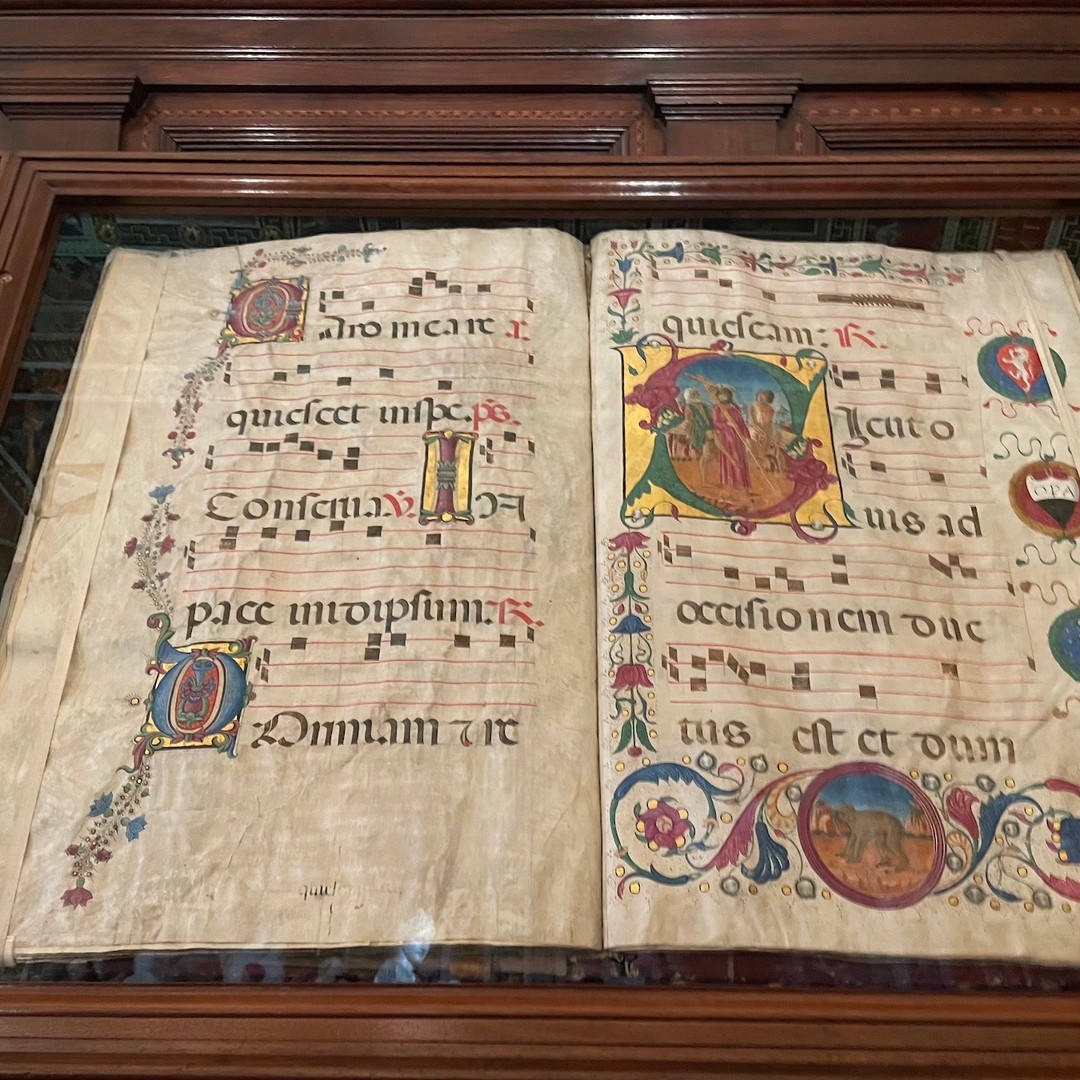 CAro mea re
quiescet inspe. ps.
Conserva. V. IN
pace inidipsum: R.
DOrmiam 7 re
quiescam: R.
SIcut o
uis ad
occisionem duc
tus est et dum
OPA